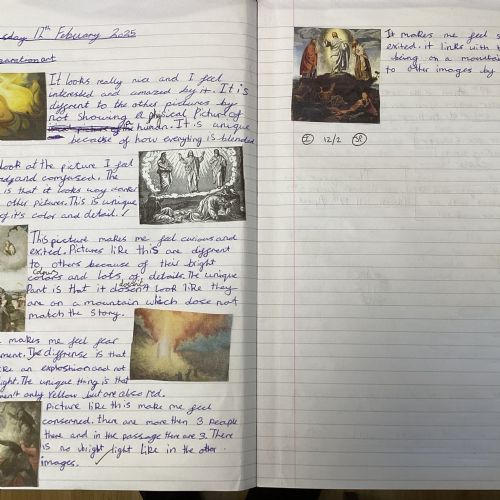 sday 12th Febuary 2025
paration art
It looks really nice and I feel
interested and amazed by it. It is
different to the other pictures by
not showing a physical Picture of
human. It is unique
because of how everything is blended
look at the picture I feel
and confused. The
is that it looks way darker
other pictures. This is unique
of it's color and detail.
This picture makes me feel curious and
exited. Pictures like this are different
to others because of their bright
colours and lots of details. The unique
part is that it doesn't look like they
are on a mountain which dose not
match the story.
makes me feel fear
ment. The diffrense is that
ike an explosion and not
ight. The unique thing is that
en't only Yellow but are also red.
picture like this make me feel
conserned. there are more then 3 people
there and in the passage there are 3. There
is no bright light like in the other
images.
It makes me feel s
exited. it links with t
being on a mountai
to other images by
I 12/2 SR